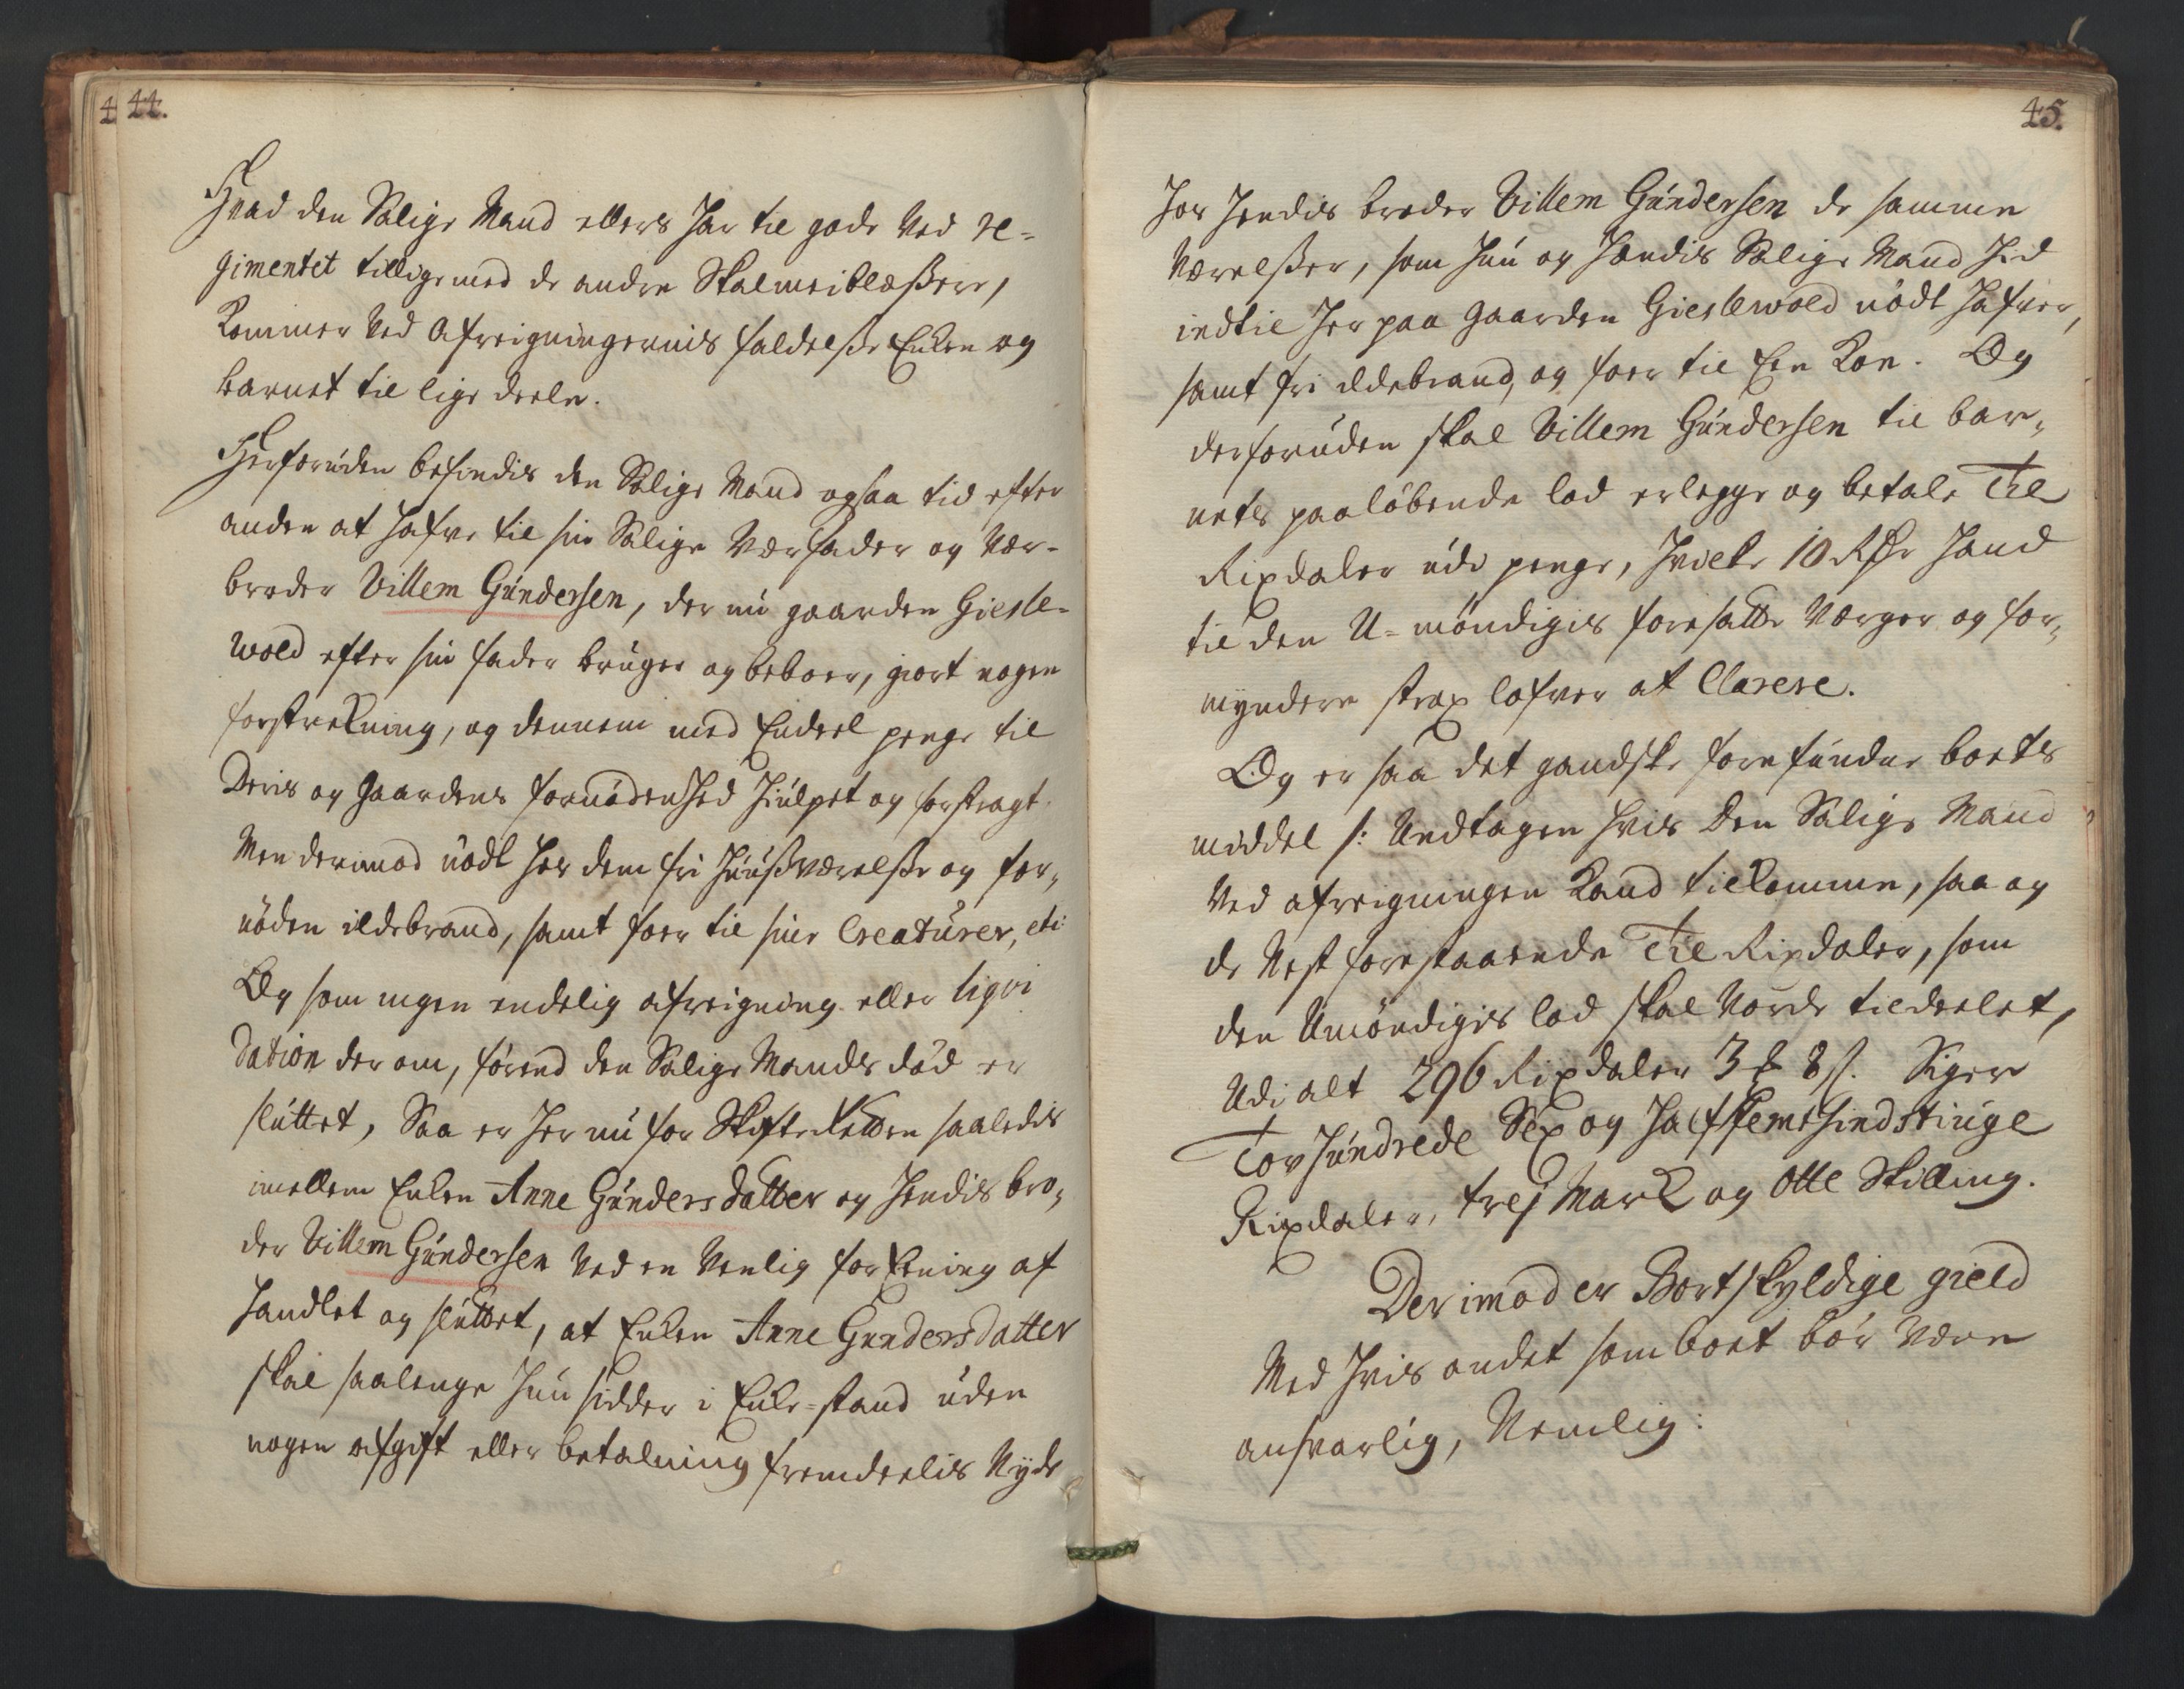 44.
Hvad den Salige Mand ellers har til gode ved re-
gimentet tilligemed de andre Skalmeiblæßere,
kommer ved Afreigningernis faldelse Enken og
barnet til lige deele.
Herforuden befindis den Salige Mand ogsaa tid efter
anden at hafve til sin Salige Værfader og Vær-
broder Villem Gúndersen, der nú gaarden Giesle-
wold efter sin fader brúger og beboer, giort nogen
forstrekning, og dennem med Endeel penge til
Deris og Gaardens fornødenhed hiúlpet og forstragt.
Men derimod nødt hos dem fri Húúßværelße og for„
nøden ildebrand, samt foer til sine Creatúrer, etc:
Og som ingen endelig afreigning eller liqvi
dation der om, førend den Salige Mands død er
slúttet, Saa er her nú for Skifte Retten saaledis
imellem Enken Anne Gúndersdatter og hendis bro„
der Villem Gúndersen ved en venlig foreening af
handlet og slúttet, at Enken Anne Gundersdatter
skal saalenge hún sidder i Enke-stand úden
nogen afgift eller betalning fremdeelis Nyde
45.
hos hendis broder Villem Gúndersen de samme
Værelßer, som hún og hendis Salige Mand hid
indtil her paa Gaarden Gieslewold nødt hafver,
samt fri ildebrand, og foer til Een Koe. Og
desforúden skal Villem Gúndersen til bar„
nets paaløbende lod erlegge og betale Tie
Rixdaler údi penge, hvilke 10 Rdr hand
til den U-møndigis foresatte Værger og for„
myndere strax lofver at Clarere.
Og er saa det gandske forefúndne boets
middel /: Undtagen hvis Den Salige Mand
ved afreigningen kand tilkomme, saa og
de Nest forestaaende Tie Rixdaler, som
den Umøndigis lod skal vorde tildeelet,
Udi alt 296 Rixdaler 3 ℔ 8 ß. Siger
Tov húndrede Sex og halffemtesindstiúge
Rixdaler, trej Mark og Otte Skilling.
Derimod er Bortskyldige gield
Med hvis andet som boet bør være
ansvarlig, Nemlig: